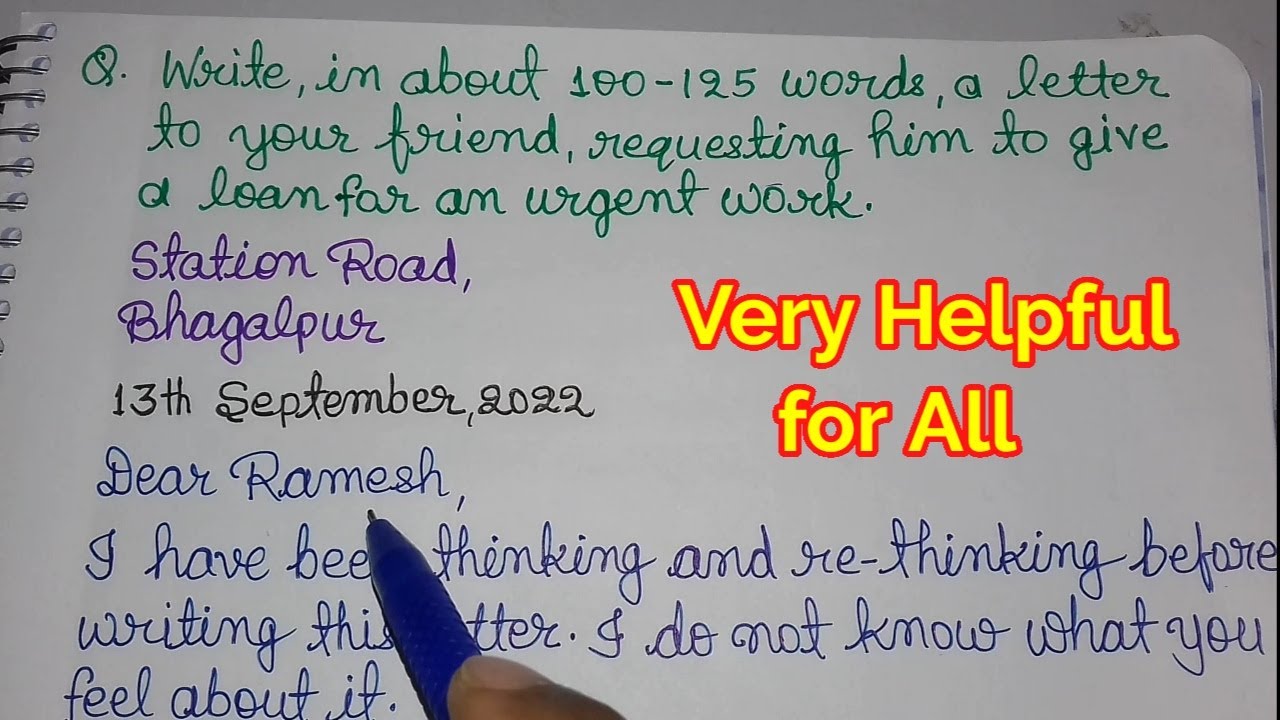 Q. Write, in about 100-125 words, a letter
to your friend, requesting him to give
a loan for an urgent work.
Station Road,
Bhagalpur
Very Helpful
for All
13th September, 2022
Dear Ramesh,
I have thinking and re-thinking before
writing this . I do not know what you
feel about it.